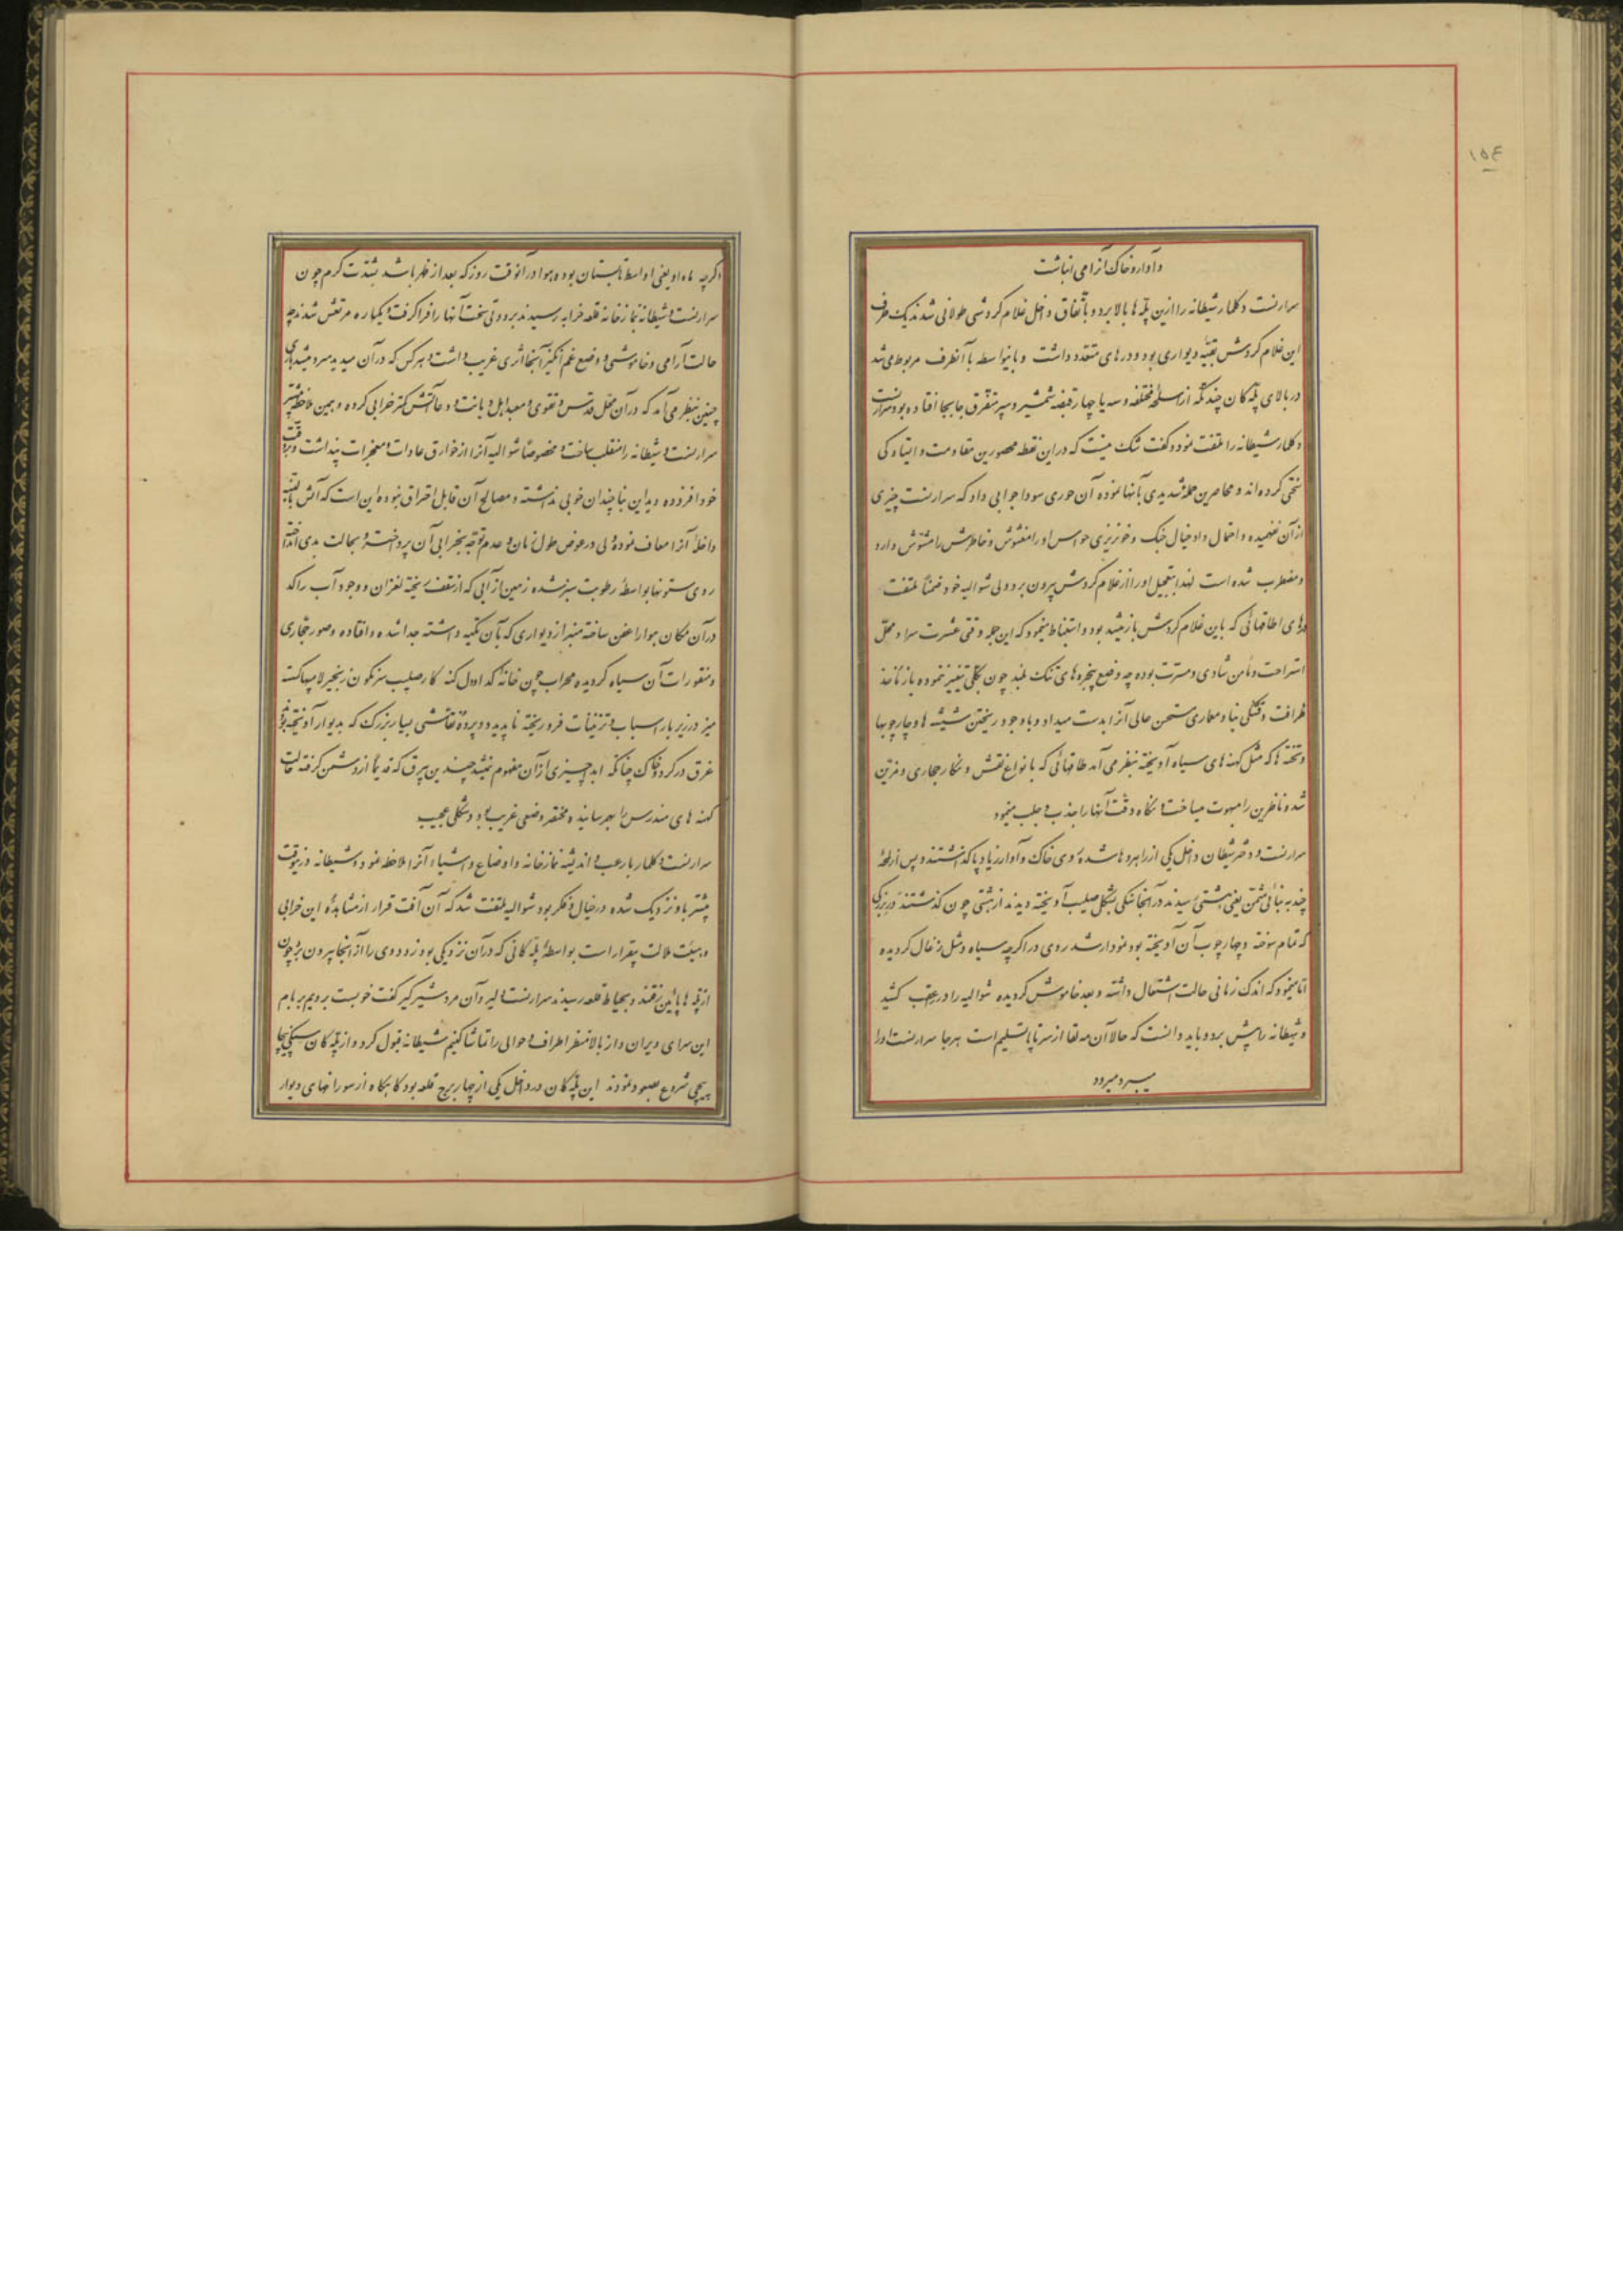 ۱۵۴
و آوار و خاک آنرا می انباشت
سرارنست دکلمار شیطانه را ازین پله ها بالا برد و باتفاق داخل غلام گردشی طولانی شدند یک طرف
این غلام گردش بقیه دیواری بود و درهای متعدد داشت و باینواسطه با آنطرف مربوط می شد
در بالای پله کان چند تکه از اسلحه مختلفه و سه یا چهار قبضه شمشیر و سپر متفرق جابجا افتاده بود سرارنست
دکلمار شیطانه را ملتفت نمود و گفت شک نیست که در این نقطه محصورین مقاومت و ایستادگی
سختی کرده اند و محاصرین حمله شدیدی بآنها نموده آن حوری سودا جوابی داد که سرارنست چیزی
از آن نفهمیده و احتمال داد خیال جنگ و خونریزی حواس او را مغشوش و خاطرش را مشوش دارد
و مضطرب شده است لهذا بتعجیل او را از غلام گردش بیرون برد ولی شوالیه خود ضمناً ملتفت
درهای اطاقهائی که باین غلام گردش باز میشد بود و استنباط مینمود که این جمله وقتی عشرت سرا و محل
استراحت و مأمن شادی و مسرت بوده چه وضع پنجره های تنک بلند چون بکلی تغییر ننموده باز مأخذ
ظرافت و قشنگی بنا و معماری مستحسن عالی آنرا بدست میداد و باوجود ریختن شیشه ها و چارچوبها
و تخته ها که مثل کهنه های سیاه آویخته بنظر می آمد طاقهائی که بانواع نقش و نگار حجاری و مزین
شده ناظرین را مبهوت میساخت و نگاه دقت آنها را جذب و جلب مینمود
سرارنست و دختر شیطان داخل یکی از راهروها شده روی خاک و آوار زیاد پا گذاشتند و پس از لحظه
چند به بنائی مثمن یعنی هشتی رسیدند در آنجا سنگی بشکل صلیب آویخته دیدند از هشتی چون گذشتند در بزرگی
که تمام سوخته و چارچوب آن آویخته بود نمودار شد روی در اگرچه سیاه و مثل زغال گردیده
اما مینمود که اندک زمانی حالت اشتعال داشته و بعد خاموش گردیده شوالیه را در عقب کشید
و شیطانه را پیش برد و باید دانست که حالا آن مه لقا از سر تا پا تسلیم است هر جا سرارنست او را
میبرد میرود
اگرچه ماه او یعنی اواسط تابستان بوده و هوا در آنوقت روز که بعد از ظهر باشد بشدت گرم چون
سرارنست و شیطانه نمازخانه قلعه خرابه رسیدند برودتی سخت آنها را فرا گرفت و یکباره مرتعش شدند چه
حالت آرامی و خاموشی و وضع غم انگیز آنجا اثری غریب داشت و هر کس که در آن میدید سرد میشد باری
چنین بنظر می آمد که در آن محل قدس و تقوی و معبد اهل دیانت و دعا آتش کمتر خرابی کرده و همین ملاحظه بیشتر
سرارنست و شیطانه را منقلب ساخت و مخصوصاً شوالیه آنرا از خوارق عادات و معجزات پنداشت و بر دقت
خود افزوده دید این بنا چندان خوبی نداشته و مصالح آن قابل احتراق نبوده این است که آتش البته
داخله آنرا معاف نموده ولی در عوض طول زمان و عدم توجه بخرابی آن پرداخته و بحالت بدی انداخته
روی ستونها بواسطه رطوبت سبز شده زمین از آبی که از سقف ریخته لغزان و وجود آب راکد
در آن مکان هوا را عفن ساخته منبر از دیواری که بآن تکیه داشته جدا شده و افتاده و صور حجاری
و منقورات آن سیاه گردیده محراب چون خانه گدا و دل کنه کار صلیب سرنگون زنجیر لامپها گسته
میز در زیر بار اسباب و تزئینات فرو ریخته ناپدید و دو پرده نقاشی بسیار بزرگ که بدیوار آویخته بود
غرق در گرد و خاک چنانکه ابداً چیزی از آن مفهوم نمیشد چندین بیرق که قدیماً از دشمن گرفته حالت
کهنه های مندرس را بهم رسانیده مختصر وضعی غریب بود و شکلی عجیب
سرارنست دکلمار با رعب و اندیشه نمازخانه و اوضاع و اشیاء آنرا ملاحظه نمود و شیطانه در اینوقت
بیشتر باو نزدیک شده در خیال و فکر بود شوالیه ملتفت شد که آن آفت قرار از مشاهده این خرابی
و هیئت ملالت بیقرار است بواسطه پله کانی که در آن نزدیکی بود زود وی را از آنجا بیرون برد چون
از پله ها پائین رفتند و بحیاط قلعه رسیدند سرارنست دلیر و آن مرد شیرگیر گفت خوبست برویم بر بام
این سرای ویران و از بالا منظر اطراف و حوالی را تماشا کنیم شیطانه قبول کرد و از پله کان سنگی پیچا
پیچی شروع بصعود نمودند این پله کان در داخل یکی از چهار برج قلعه بود گاه بگاه از سوراخهای دیوار